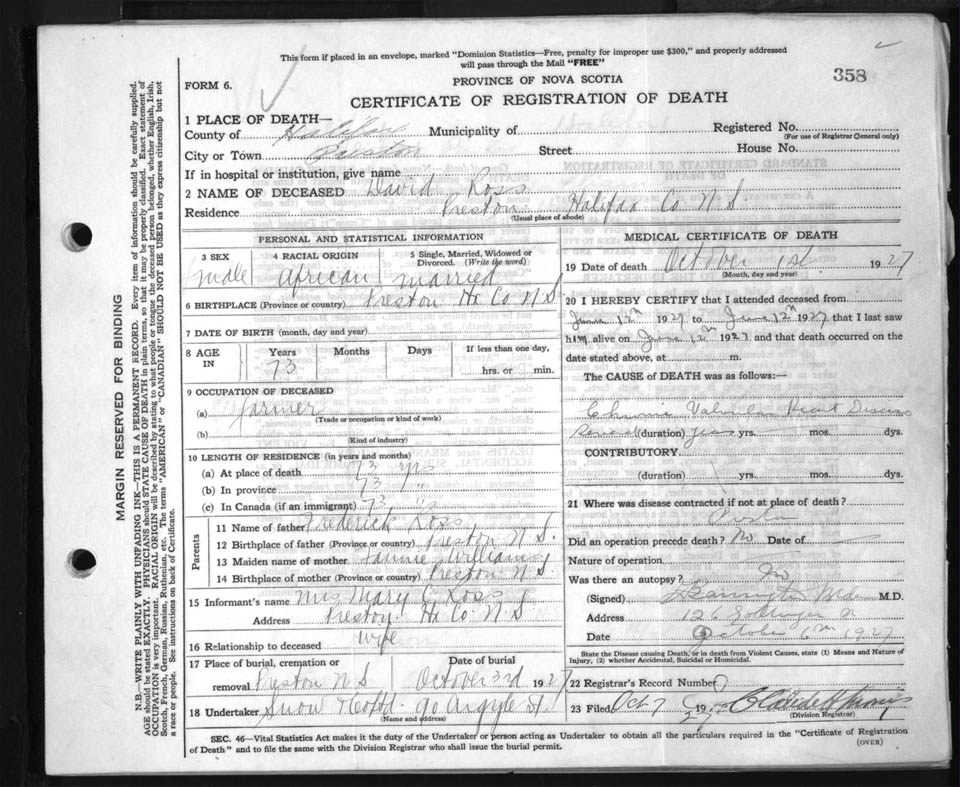 This form if placed in an envelope, marked "Dominion Statistics—Free, penalty for improper use $300," and properly addressed
will pass through the Mail "FREE"
358
FORM 6.
PROVINCE OF NOVA SCOTIA
CERTIFICATE OF REGISTRATION OF DEATH
1 PLACE OF DEATH—
County of Halifax Municipality of Registered No.
(For use of Registrar General only)
City or Town Preston Street House No.
If in hospital or institution, give name
2 NAME OF DECEASED David Ross
Residence Preston Halifax Co N S
(Usual place of abode)
PERSONAL AND STATISTICAL INFORMATION
3 SEX 4 RACIAL ORIGIN 5 Single, Married, Widowed or Divorced. (Write the word)
male African married
6 BIRTHPLACE (Province or country) Preston Hx Co N S
7 DATE OF BIRTH (month, day and year)
8 AGE IN Years Months Days If less than one day,
73 hrs. or min.
9 OCCUPATION OF DECEASED
(a) farmer
(Trade or occupation or kind of work)
(b)
Kind of industry)
10 LENGTH OF RESIDENCE (in years and months)
(a) At place of death 73 yrs
(b) In province 73 "
(c) In Canada (if an immigrant) 73 "
Parents
11 Name of father Frederick Ross
12 Birthplace of father (Province or country) Preston N.S.
13 Maiden name of mother Fannie Williams
14 Birthplace of mother (Province or country) Preston N S.
15 Informant's name Mrs Mary C Ross
Address Preston Hx Co N S
16 Relationship to deceased wife
17 Place of burial, cremation or Date of burial
removal Preston N S October 3rd 1927
18 Undertaker Snow & Co Ltd 90 Argyle St.
(Name and address)
MEDICAL CERTIFICATE OF DEATH
19 Date of death October 1st 1927
(Month, day and year)
20 I HEREBY CERTIFY that I attended deceased from
June 12th 1927 to June 12th 1927 that I last saw
him alive on June 12th 1927 and that death occurred on the
date stated above, at m.
The CAUSE of DEATH was as follows:—
Chronic Valvular Heart Disease
Several (duration) years yrs. mos. dys.
CONTRIBUTORY
(duration) yrs. mos. dys.
21 Where was disease contracted if not at place of death?
Preston
Did an operation precede death? No Date of
Nature of operation
Was there an autopsy? No
(Signed) M.D.
Address 12 Gottingen St
Date October 6th 1927
State the Disease causing Death, or in death from Violent Causes, state (1) Means and Nature of
Injury, (2) whether Accidental, Suicidal or Homicidal.
22 Registrar's Record Number
23 Filed Oct 7 1927
(Division Registrar)
SEC. 46—Vital Statistics Act makes it the duty of the Undertaker or person acting as Undertaker to obtain all the particulars required in the "Certificate of Registration
of Death" and to file the same with the Division Registrar who shall issue the burial permit.
(OVER)
MARGIN RESERVED FOR BINDING
N.B.—WRITE PLAINLY WITH UNFADING INK—THIS IS A PERMANENT RECORD. Every item of information should be carefully supplied.
AGE should be stated EXACTLY. PHYSICIANS should STATE CAUSE OF DEATH in plain terms, so that it may be properly classified. Exact statement of
OCCUPATION is very important. RACIAL ORIGIN will be described by stating to what people or tongue the deceased person belonged, whether English, Irish,
Scotch, French, German, Russian, Ruthenian, etc. The terms "AMERICAN" or "CANADIAN" SHOULD NOT BE USED as they express citizenship but not
a race or people. See instructions on back of Certificate.